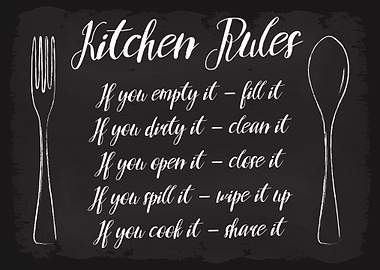 Kitchen Rules
If you empty it – fill it
If you dirty it – clean it
If you open it – close it
If you spill it – wipe it up
If you cook it – share it